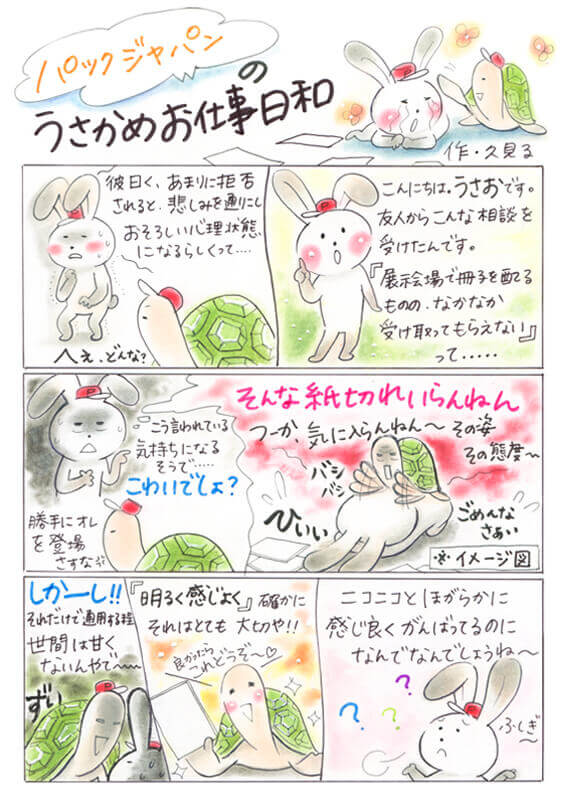 パックジャパン
の
うさかめお仕事日和
作・久見る
こんにちは。うさおです。
友人からこんな相談を
受けたんです。
『展示会場で冊子を配てる
ものの、なかなか
受け取ってもらえない』
って・・・・・
彼曰く、あまりに拒否
されると、悲しみを通りこし
おそろしい心理状態
になるらしくって・・・・
へぇ、どんな?
そんな紙切れいらんねん
つーか、気に入らんねん〜 その姿
その態度〜
バシ
バシ
ひいぃ
ごめんな
さぁい
※イメージ図
こう言われている
気持ちになる
そうで・・・・・
こわいでしょ?
勝手にオレ
を登場
さすな
ニコニコとほがらかに
感じ良くがんばってるのに
なんでなんでしょうね〜
? ? ?
ふしぎ〜
『明るく感じよく』確かに
それはとても大切や!!
良かったら
つれどうぞ〜♡
しかーし!!
それだけで通用する程
世間は甘く
ないんやで〜
ずい